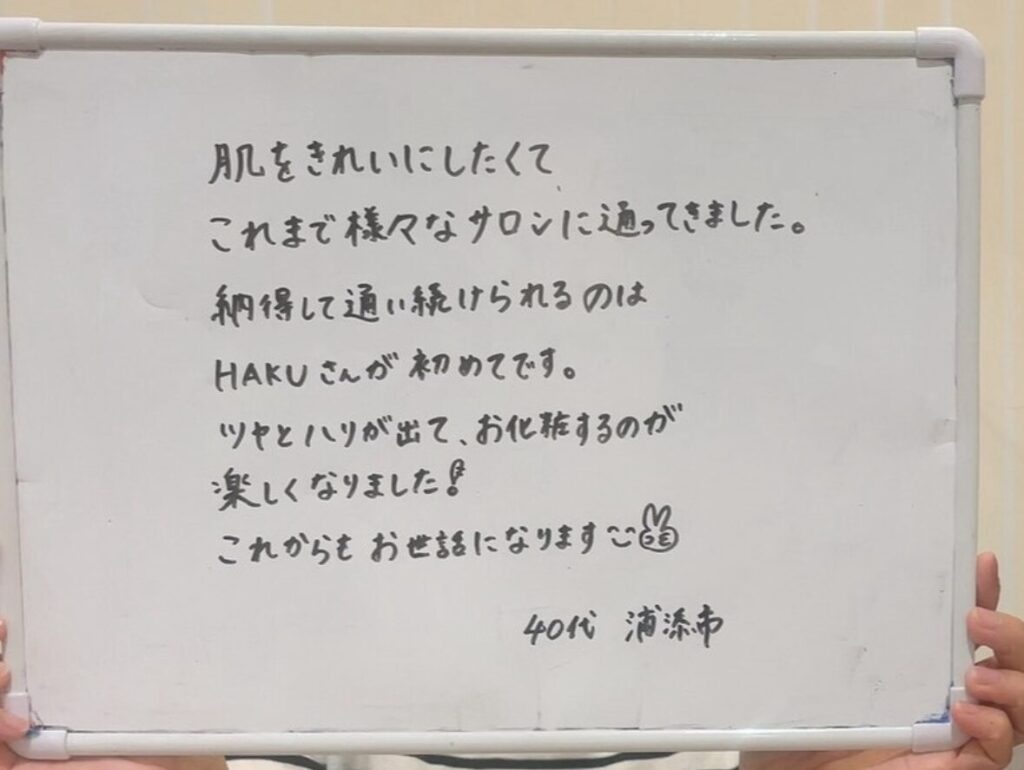 肌をきれいにしたくて
これまで様々なサロンに通ってきました。
納得して通い続けられるのは
HAKUさんが初めてです。
ツヤとハリが出て、お化粧するのが
楽しくなりました!
これからもお世話になります
40代 浦添市